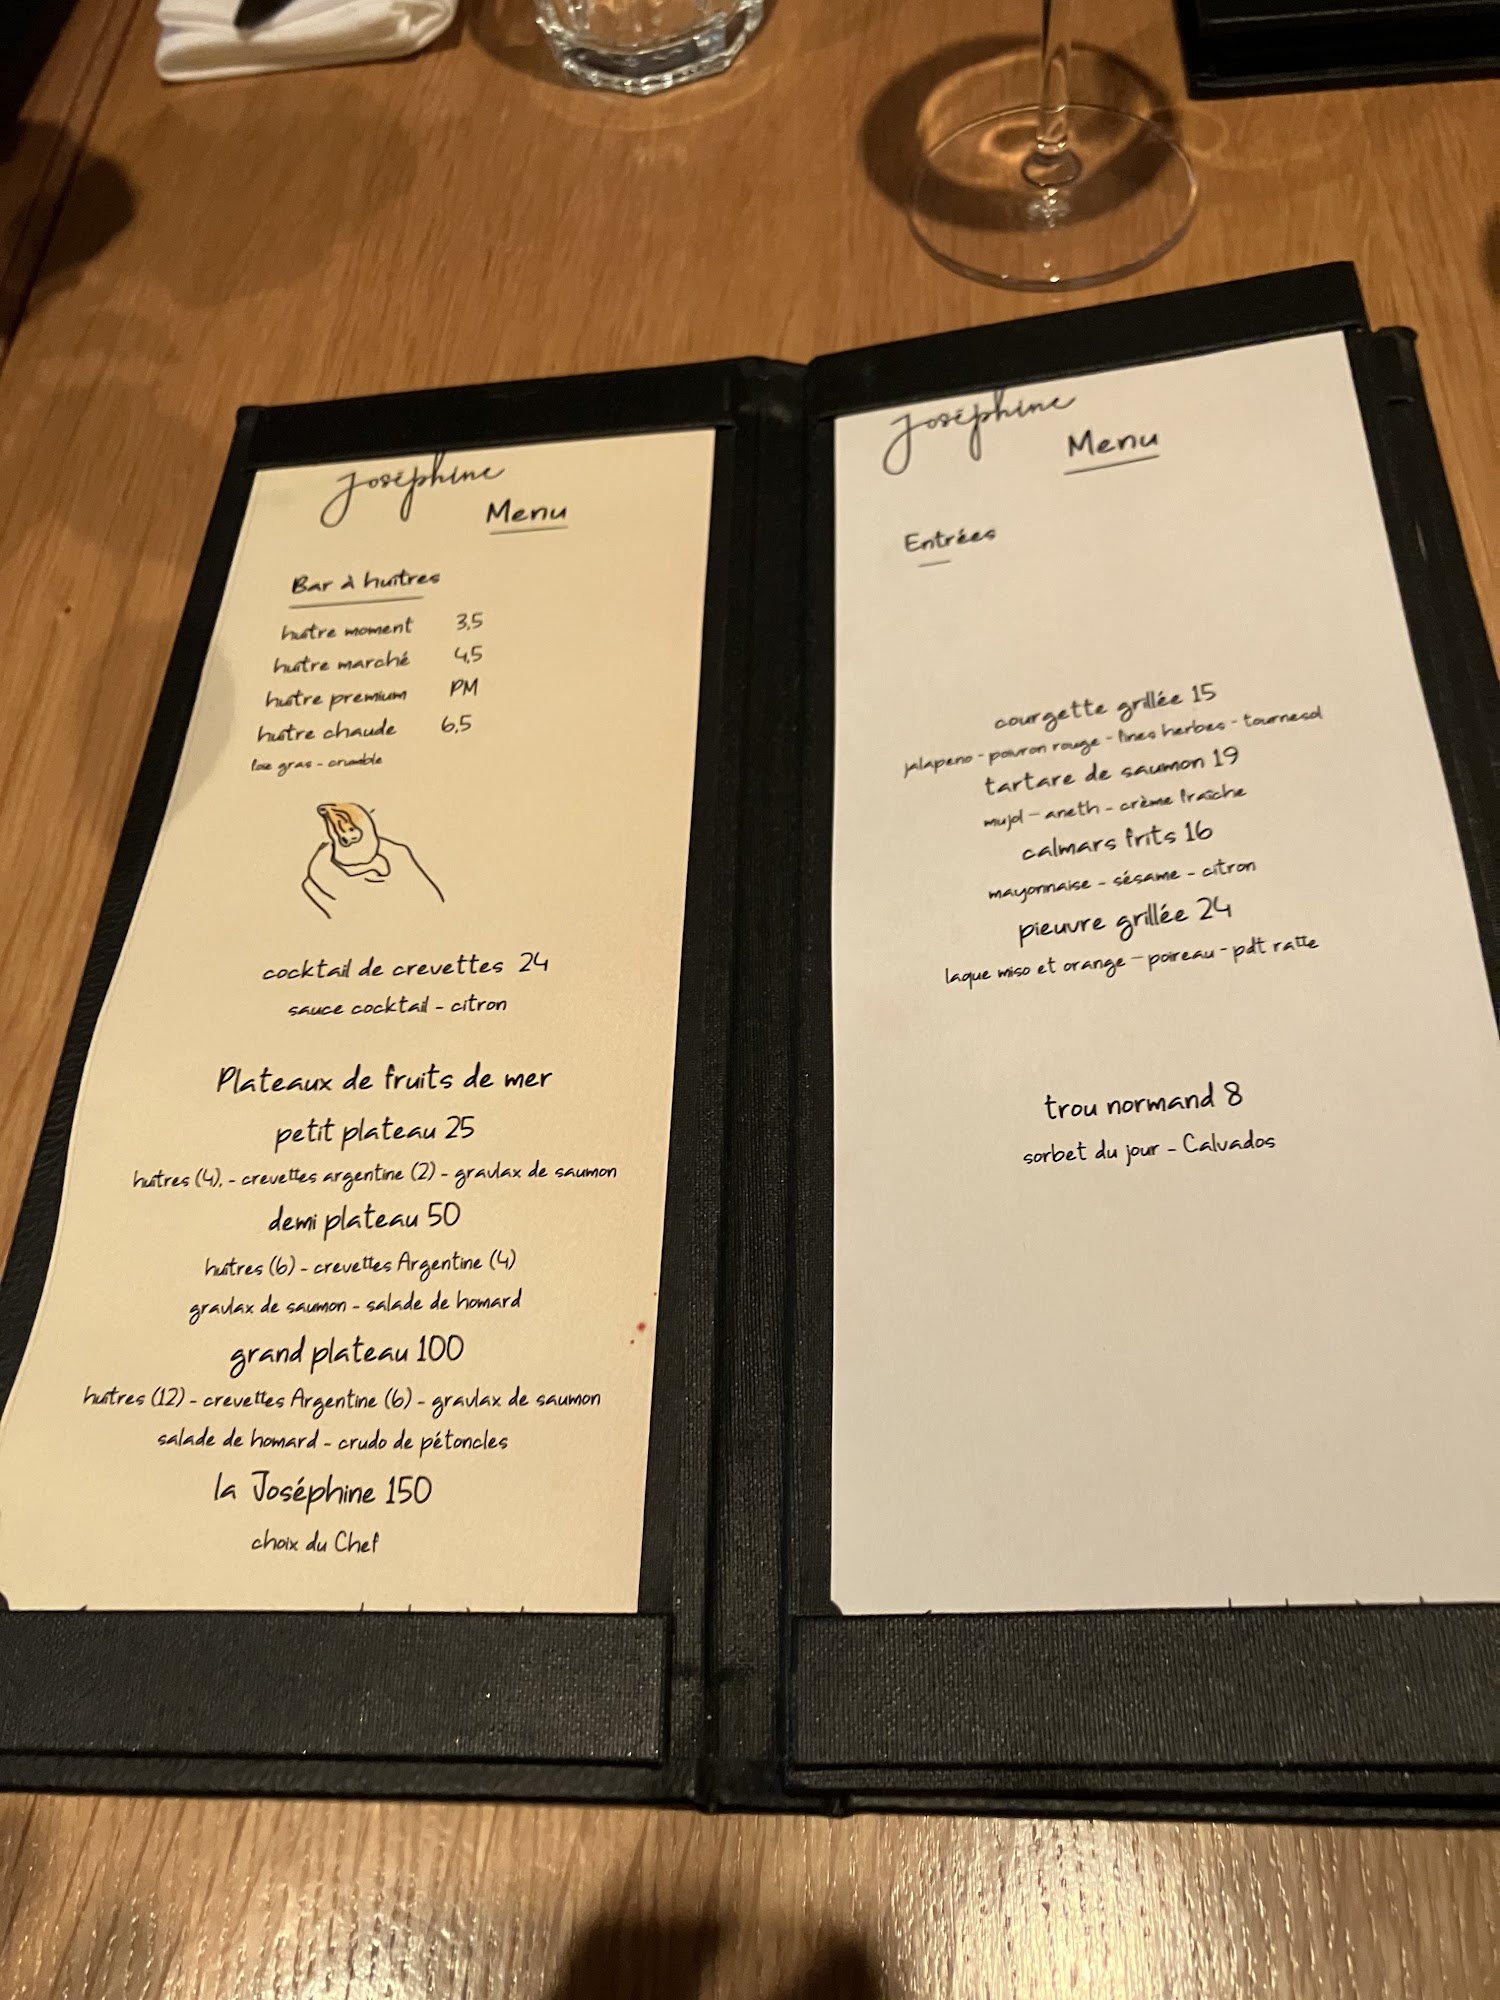 Joséphine
Menu
Bar à huîtres
huître moment 3,5
huître marché 4,5
huître premium PM
huître chaude 6,5
foie gras - crumble
cocktail de crevettes 24
sauce cocktail - citron
Plateaux de fruits de mer
petit plateau 25
huîtres (4), - crevettes argentine (2) - gravlax de saumon
demi plateau 50
huîtres (6) - crevettes Argentine (4)
gravlax de saumon - salade de homard
grand plateau 100
huîtres (12) - crevettes Argentine (6) - gravlax de saumon
salade de homard - crudo de pétoncles
la Joséphine 150
choix du Chef
Joséphine
Menu
Entrées
courgette grillée 15
jalapeno - poivron rouge - fines herbes - tournesol
tartare de saumon 19
mujol - aneth - crème fraîche
calmars frits 16
mayonnaise - sésame - citron
pieuvre grillée 24
laque miso et orange - poireau - pdt ratte
trou normand 8
sorbet du jour - Calvados